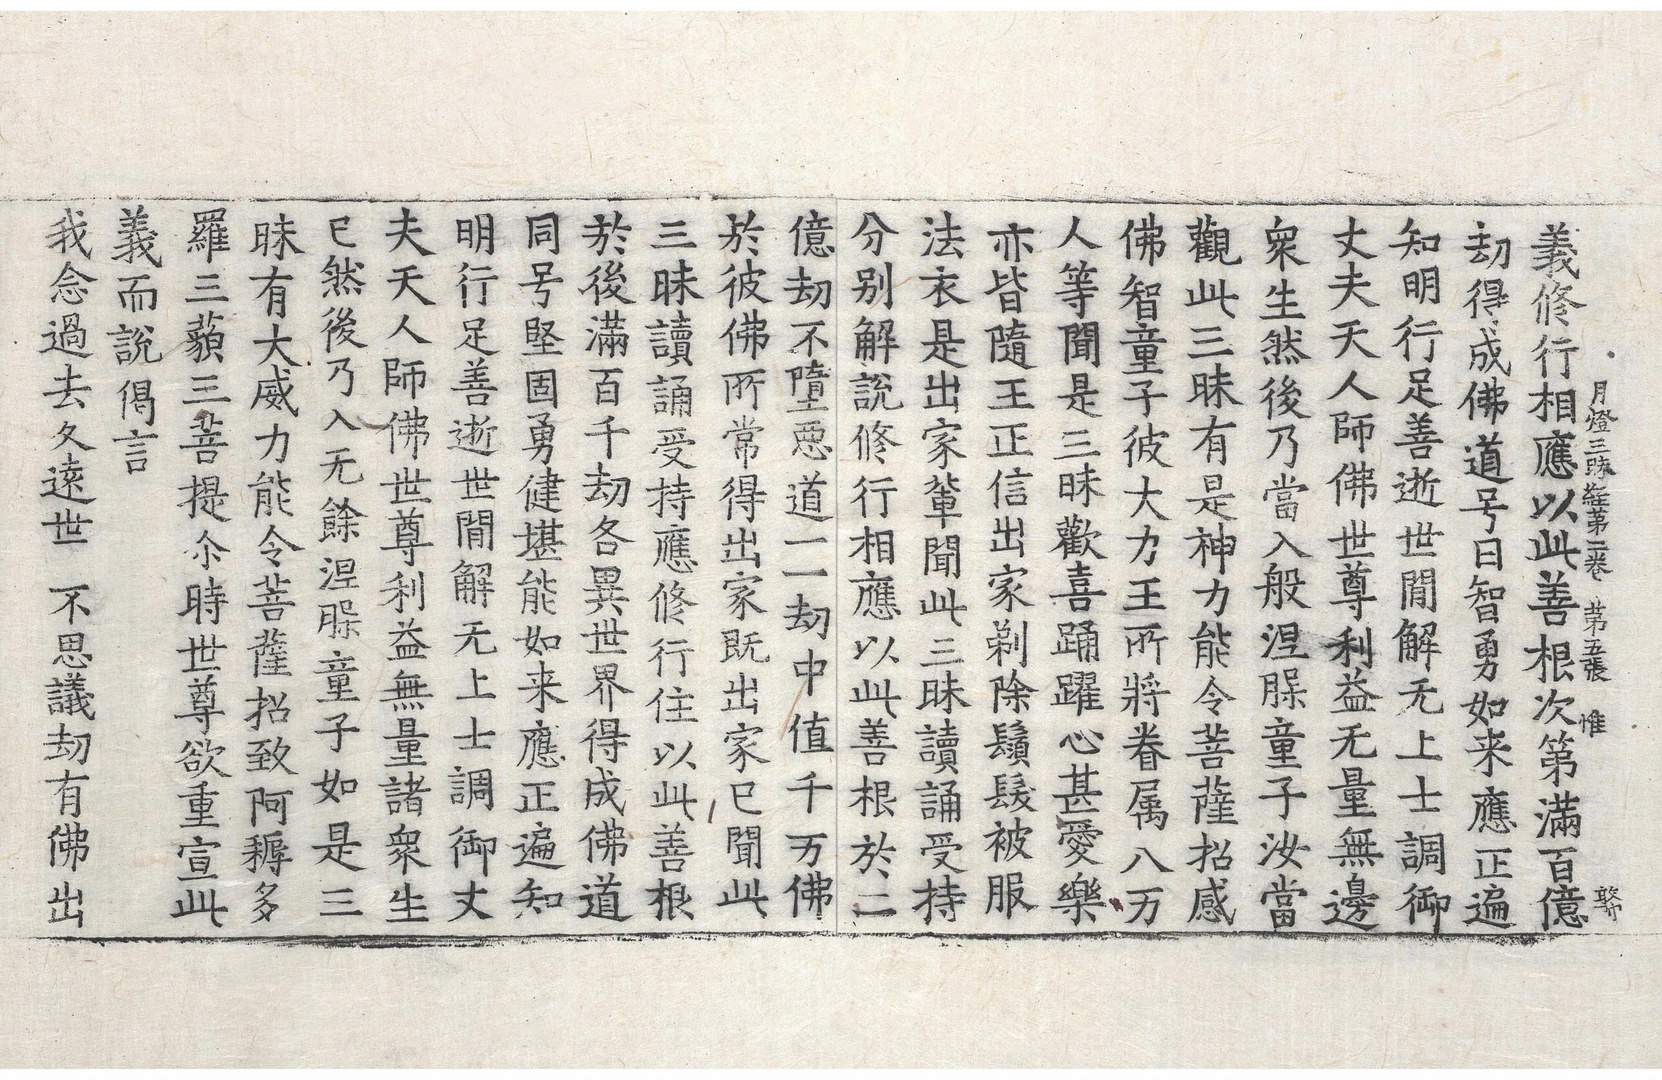 月燈三昧經第二卷 第五張 惟
義修行相應以此善根次第滿百億
劫得成佛道号曰智勇如来應正遍
知明行足善逝世閒解无上士調御
丈夫天人師佛世尊利益无量無邊
衆生然後乃當入般涅槃童子汝當
觀此三昧有是神力能令菩薩招感
佛智童子彼大力王所將眷属八万
人等聞是三昧歡喜踊躍心甚愛樂
亦皆隨王正信出家剃除鬚髮被服
法衣是出家輩聞此三昧讀誦受持
分别解說修行相應以此善根於二
億劫不墮惡道一一劫中值千万佛
於彼佛所常得出家既出家已聞此
三昧讀誦受持應修行住以此善根
於後滿百千劫各異世界得成佛道
同号堅固勇健堪能如来應正遍知
明行足善逝世閒解无上士調御丈
夫天人師佛世尊利益無量諸衆生
已然後乃入无餘涅槃童子如是三
昧有大威力能令菩薩招致阿耨多
羅三藐三菩提尒時世尊欲重宣此
義而說偈言
我念過去久遠世 不思議劫有佛出